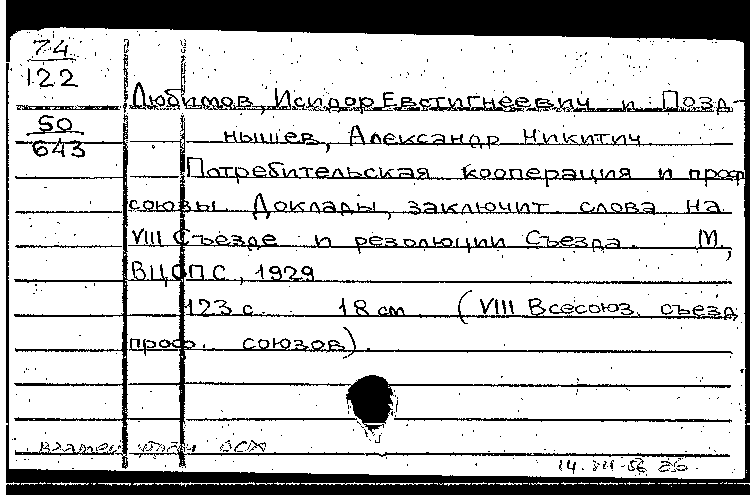 74
122
Любимов, Исидор Евстигнеевич и Позд-
50
нышев, Александр Никитич.
643
Потребительская кооперация и проф
союзы. Доклады, заключит. слова на
VIII Съезде и резолюции Съезда. М.,
ВЦСПС, 1929
123 с. 18 см. (VIII Всесоюз. съезд
проф. союзов).